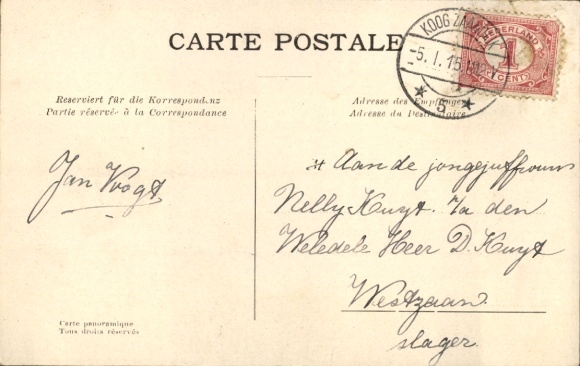 CARTE POSTALE
KOOG ZAANDIJK
-5.1.15
5
NEDERLAND
1
CENT
Reserviert für die Korrespondenz
Partie réservée à la Correspondance
Adresse des Empfängers
Adresse du Destinataire
Jan Voogt
Aan de jongejuffrouw
Nelly Kuyt. p/a den
Weledele Heer D. Kuyt
Westzaan.
slager.
Carte panoramique
Tous droits réservés